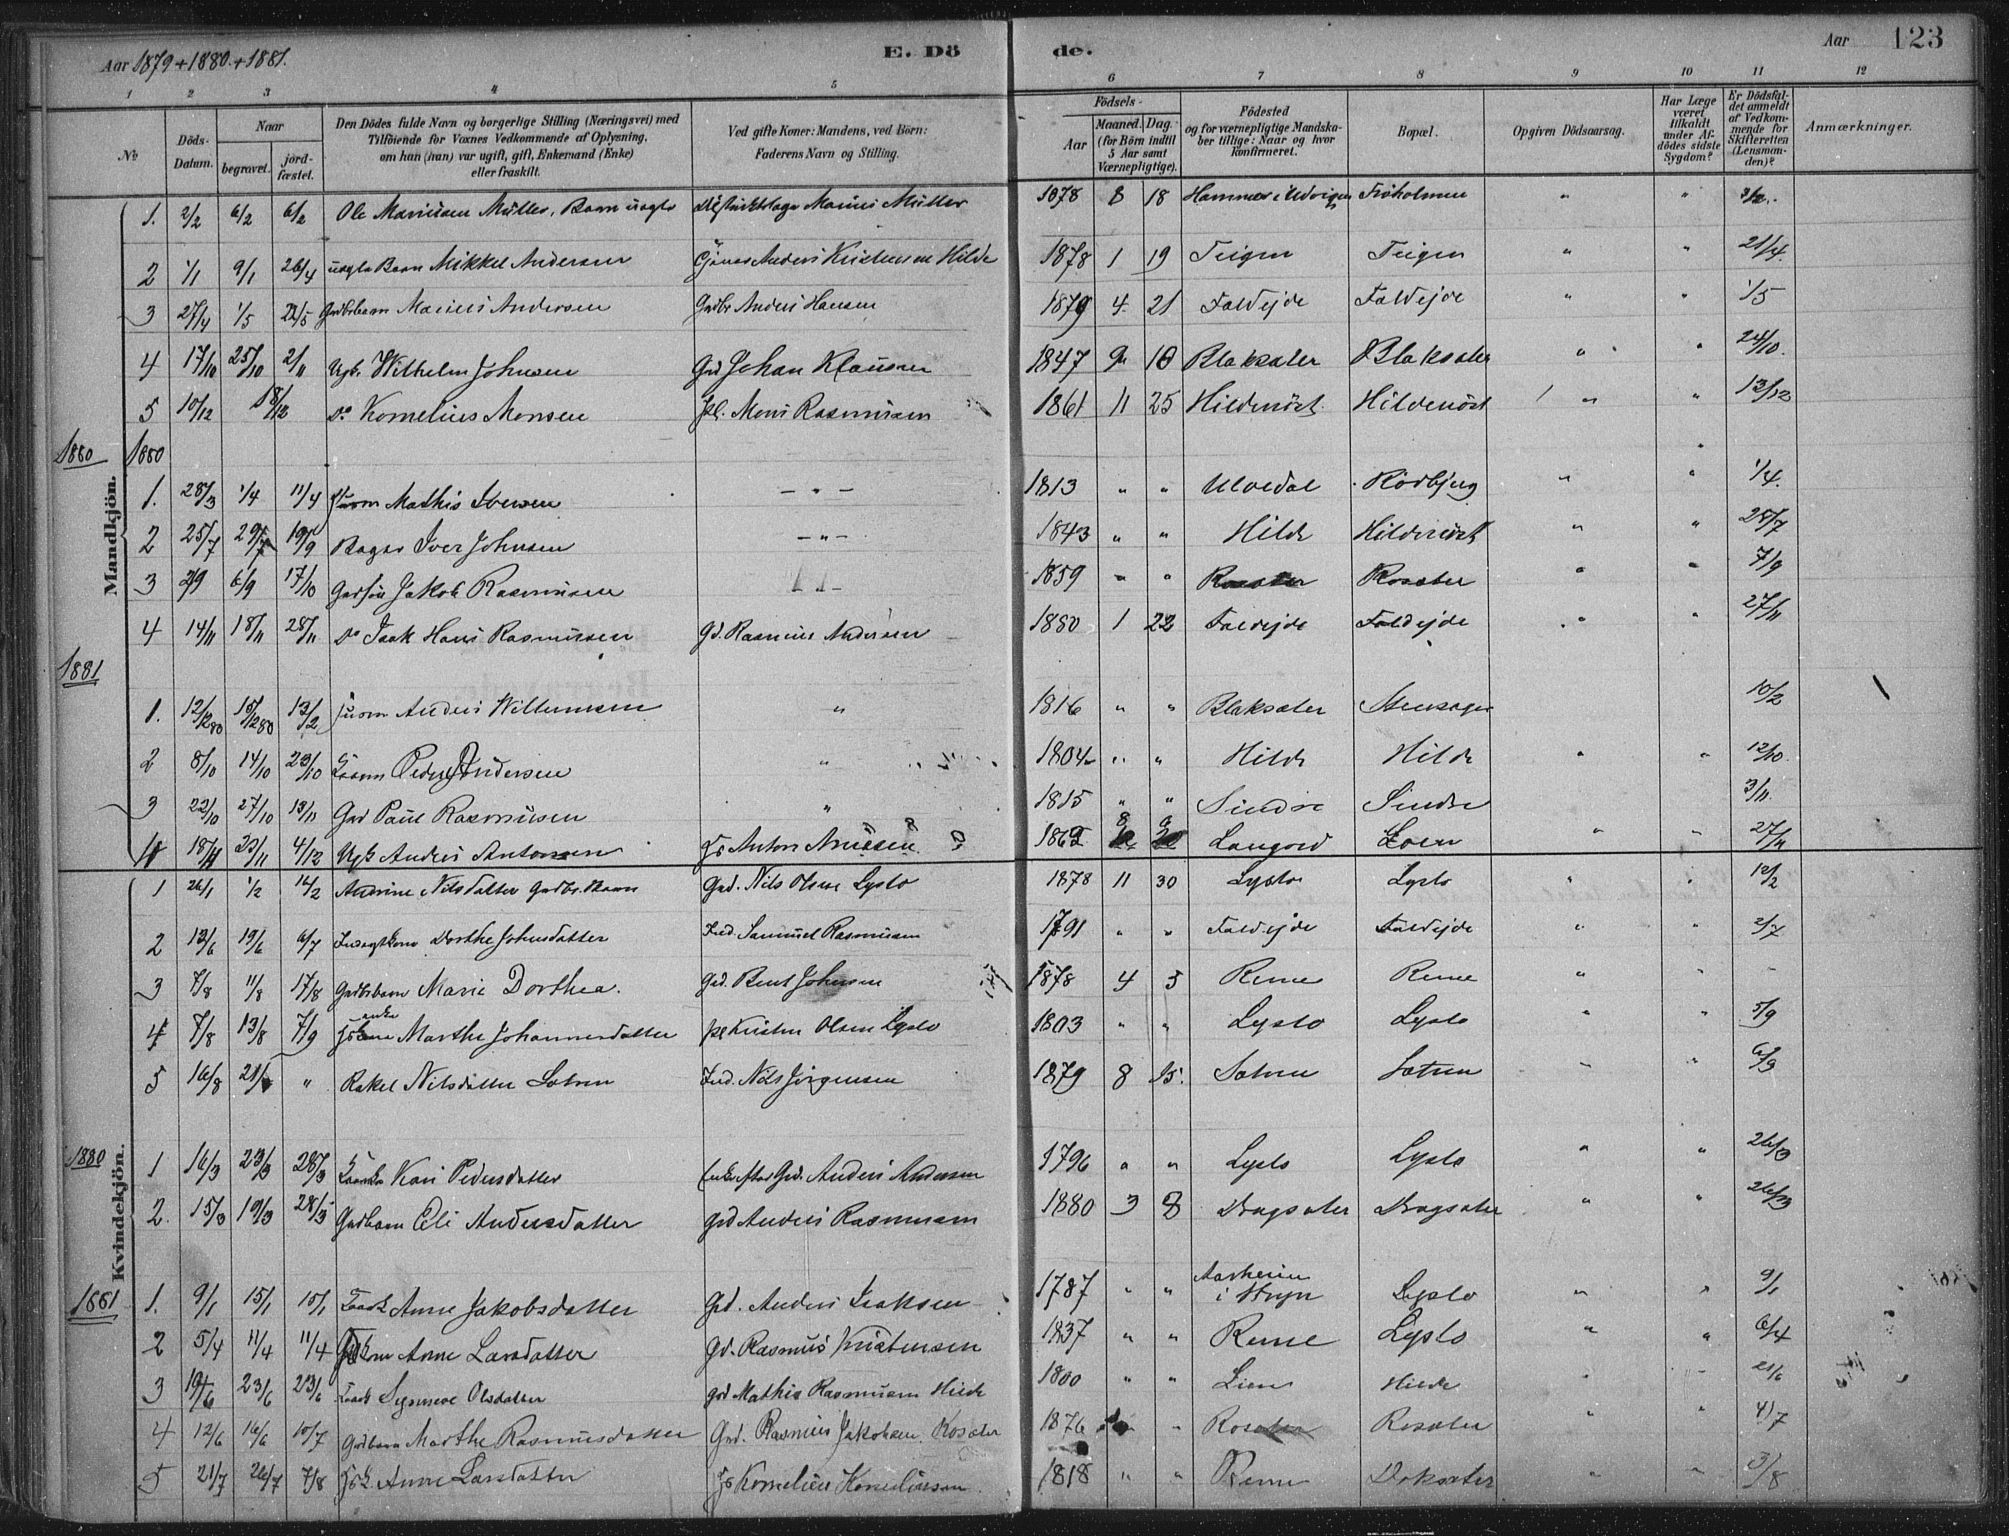 Aar 1879 + 1880 + 1881. E. Dö de. Aar 123
1 2 3 4 5 6 7 8 9 10 11 12
№ Döds-Datum. Naar begravet. jordfæstet. Den Dödes fulde Navn og borgerlige Stilling (Næringsvei) med Tilföiende for Voxnes Vedkommende af Oplysning, om han (hun) var ugift, gift, Enkemand (Enke) eller fraskilt. Ved gifte Koner: Mandens, ved Börn: Faderens Navn og Stilling. Födsels- Aar Maaned. Dag (for Börn indtil 5 Aar samt Værnepligtige). Födested og for værnepligtige Mandskaber tillige: Naar og hvor konfirmeret. Bopæl. Opgiven Dödsaarsag. Har Læge været tilkaldt under Afdödes sidste Sygdom? Er Dödsfaldet anmeldt af Vedkommende for Skifteretten (Lensmanden)? Anmærkninger.
Mandkjön.
1. 2/2 6/2 6/2 Ole Müller, Barn Marius Müller 1878 8 18 Hammer i " "
2 1/1 9/1 26/4 Barn Mikkel Andersen Anders Kristensen Hilde 1878 1 19 Teigen Teigen " " 21/4
3 27/4 1/5 22/5 Gudbrbarn Marius Andersen Gudbr Anders Hansen 1879 4 21 Faldejde Faldejde " " 1/5
4 17/10 25/10 2/11 Ugk. Wilhelm Johnsen Grd Johan Klausen 1847 9 18 Blaksæter Blaksæter " " 24/10.
5 10/12 18/12 Do Kornelius Monsen Mons Rasmusen 1861 11 25 Hildenöst Hildenöst " " 13/12
1880 1880
1. 28/3 1/4 11/4 Mathis Iversen — " — 1813 " " Ulvedal Rödbjerg " " 1/4.
2 25/7 29/7 19/9 Iver Johnsen — " — 1843 " " Hilde Hildenöst " " 28/7
3 2/9 6/9 17/10 Jakob Rasmusen 1859 " " Rosæter Rosæter " " 7/9
4 14/11 18/11 28/11 Do Isak Hans Rasmussen Gd. Rasmus Andersen 1880 1 22 Faldejde Faldejde " " 27/11
1881
1. 12/12 80 15/12 80 13/2 Anders Willumsen " 1816 " " Blaksæter 10/2
2 8/10 14/10 23/10 Peder Andersen " 1804 " " Hilde Hilde " " 12/10.
3 22/10 27/10 13/11 Grd Paul Rasmusen " 1815 " " Sindre Sindre 3/11.
4 18/11 23/11 4/12 Ugk Anders Antonsen Anton 8 9 Langord Loen " " 27/11
Kvindekjön.
1 26/1 1/2 16/2 Nilsdatter Gudbr. Barn Grd. Nils Olsen Lyslo 1878 11 30 Lyslo Lyslo " " 12/2
2 13/6 19/6 6/7 Dorthe Johnsdatter Ind. Samuel Rasmusen 1791 " " Faldejde Faldejde " " 2/7
3 7/8 11/8 17/8 Gudbrbarn Marie Dorthea. Grd. Bent Johnsen 1878 4 5 Reme Reme " "
4 7/8 13/8 7/9 enke Marthe Johannesdatter Kristen Olsen Lyslo 1803 " " Lyslo Lyslo " " 5/9
5 16/8 21/8 " Rakel Nilsdatter Sætren Ind. Nils Jörgensen 1879 8 15. Sætren Sætren " " 6/9
1880 1 16/3 23/3 28/3 Kari Pedersdatter Enke efter Grd. Anders Andersen 1796 " " Lyslo Lyslo " " 26/3
2. 15/3 19/3 28/3 Grdbarn Eli Andersdatter Grd Anders Rasmusen 1880 3 8 Dragsæter Dragsæter " " 26/3
1881 1. 9/1 15/1 15/1 Anne Jakobsdatter Grd. Anders Isaksen 1787 " " Aarheim i Stryn Lyslo " " 9/1
2 5/4 11/4 11/4 Anne Larsdatter Gd. Rasmus Kristensen 1837 " " Reme Lyslo " " 6/4
3 19/6 23/6 23/6 Synneve Olsdatter Grd Mathis Rasmusen Hilde 1800 " " Lien Hilde " " 21/6
4 12/6 16/6 10/7 Grdbarn Marthe Rasmusdatter Grd. Rasmus Jakobsen Rosæter 1876 " Rosæter Rosæter " " 4/7
5 21/7 26/7 7/8 Anne Larsdatter Kornelius Korneliussen 1818 " " Reme " " 3/8